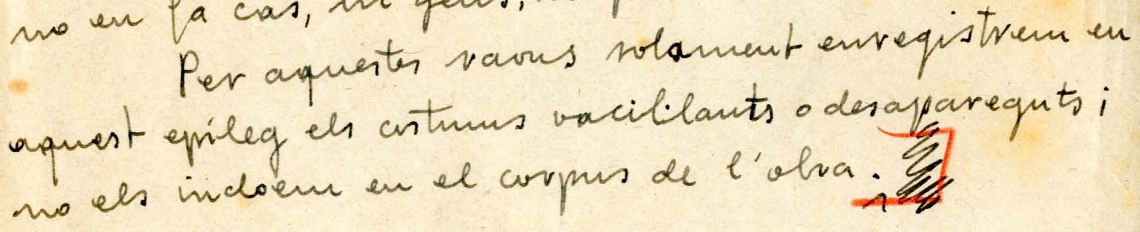 no en fa cas, ni
Per aquestes raons solament enregistrem en
aquest epíleg els costums vacil·lants o desapareguts i
no els incloem en el corpus de l'obra.